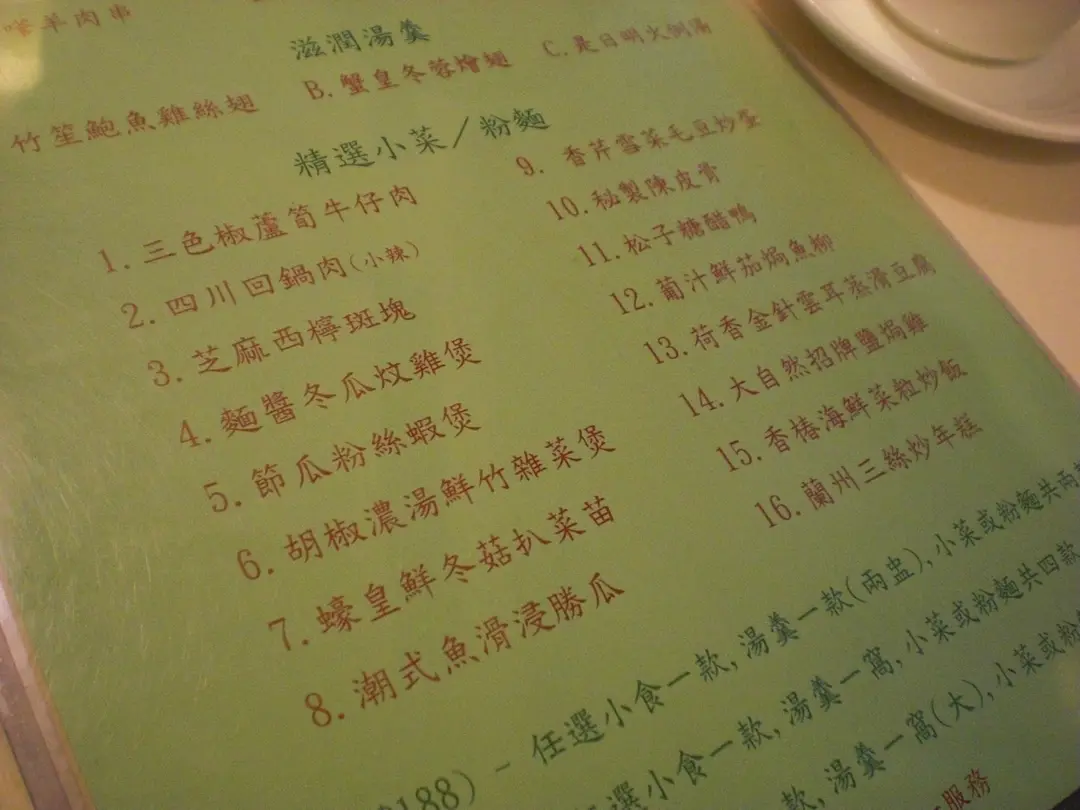 羊肉串
滋潤湯羹
竹笙鮑魚雞絲翅 B. 蟹皇冬蓉燴翅 C. 是日明火例湯
精選小菜／粉麵
1. 三色椒蘆筍牛仔肉
2. 四川回鍋肉(小辣)
3. 芝麻西檸斑塊
4. 麵醬冬瓜炆雞煲
5. 節瓜粉絲蝦煲
6. 胡椒濃湯鮮竹雜菜煲
7. 蠔皇鮮冬菇扒菜苗
8. 潮式魚滑浸勝瓜
9. 香芹雪菜毛豆炒蛋
10. 秘製陳皮骨
11. 松子糖醋鴨
12. 葡汁鮮茄焗魚柳
13. 荷香金針雲耳蒸滑豆腐
14. 大自然招牌鹽焗雞
15. 香椿海鮮菜粒炒飯
16. 蘭州三絲炒年糕
188) - 任選小食一款,湯羹一款(兩盅),小菜或粉麵共兩款
選小食一款,湯羹一窩,小菜或粉麵共四款
款,湯羹一窩(大),小菜或粉
服務